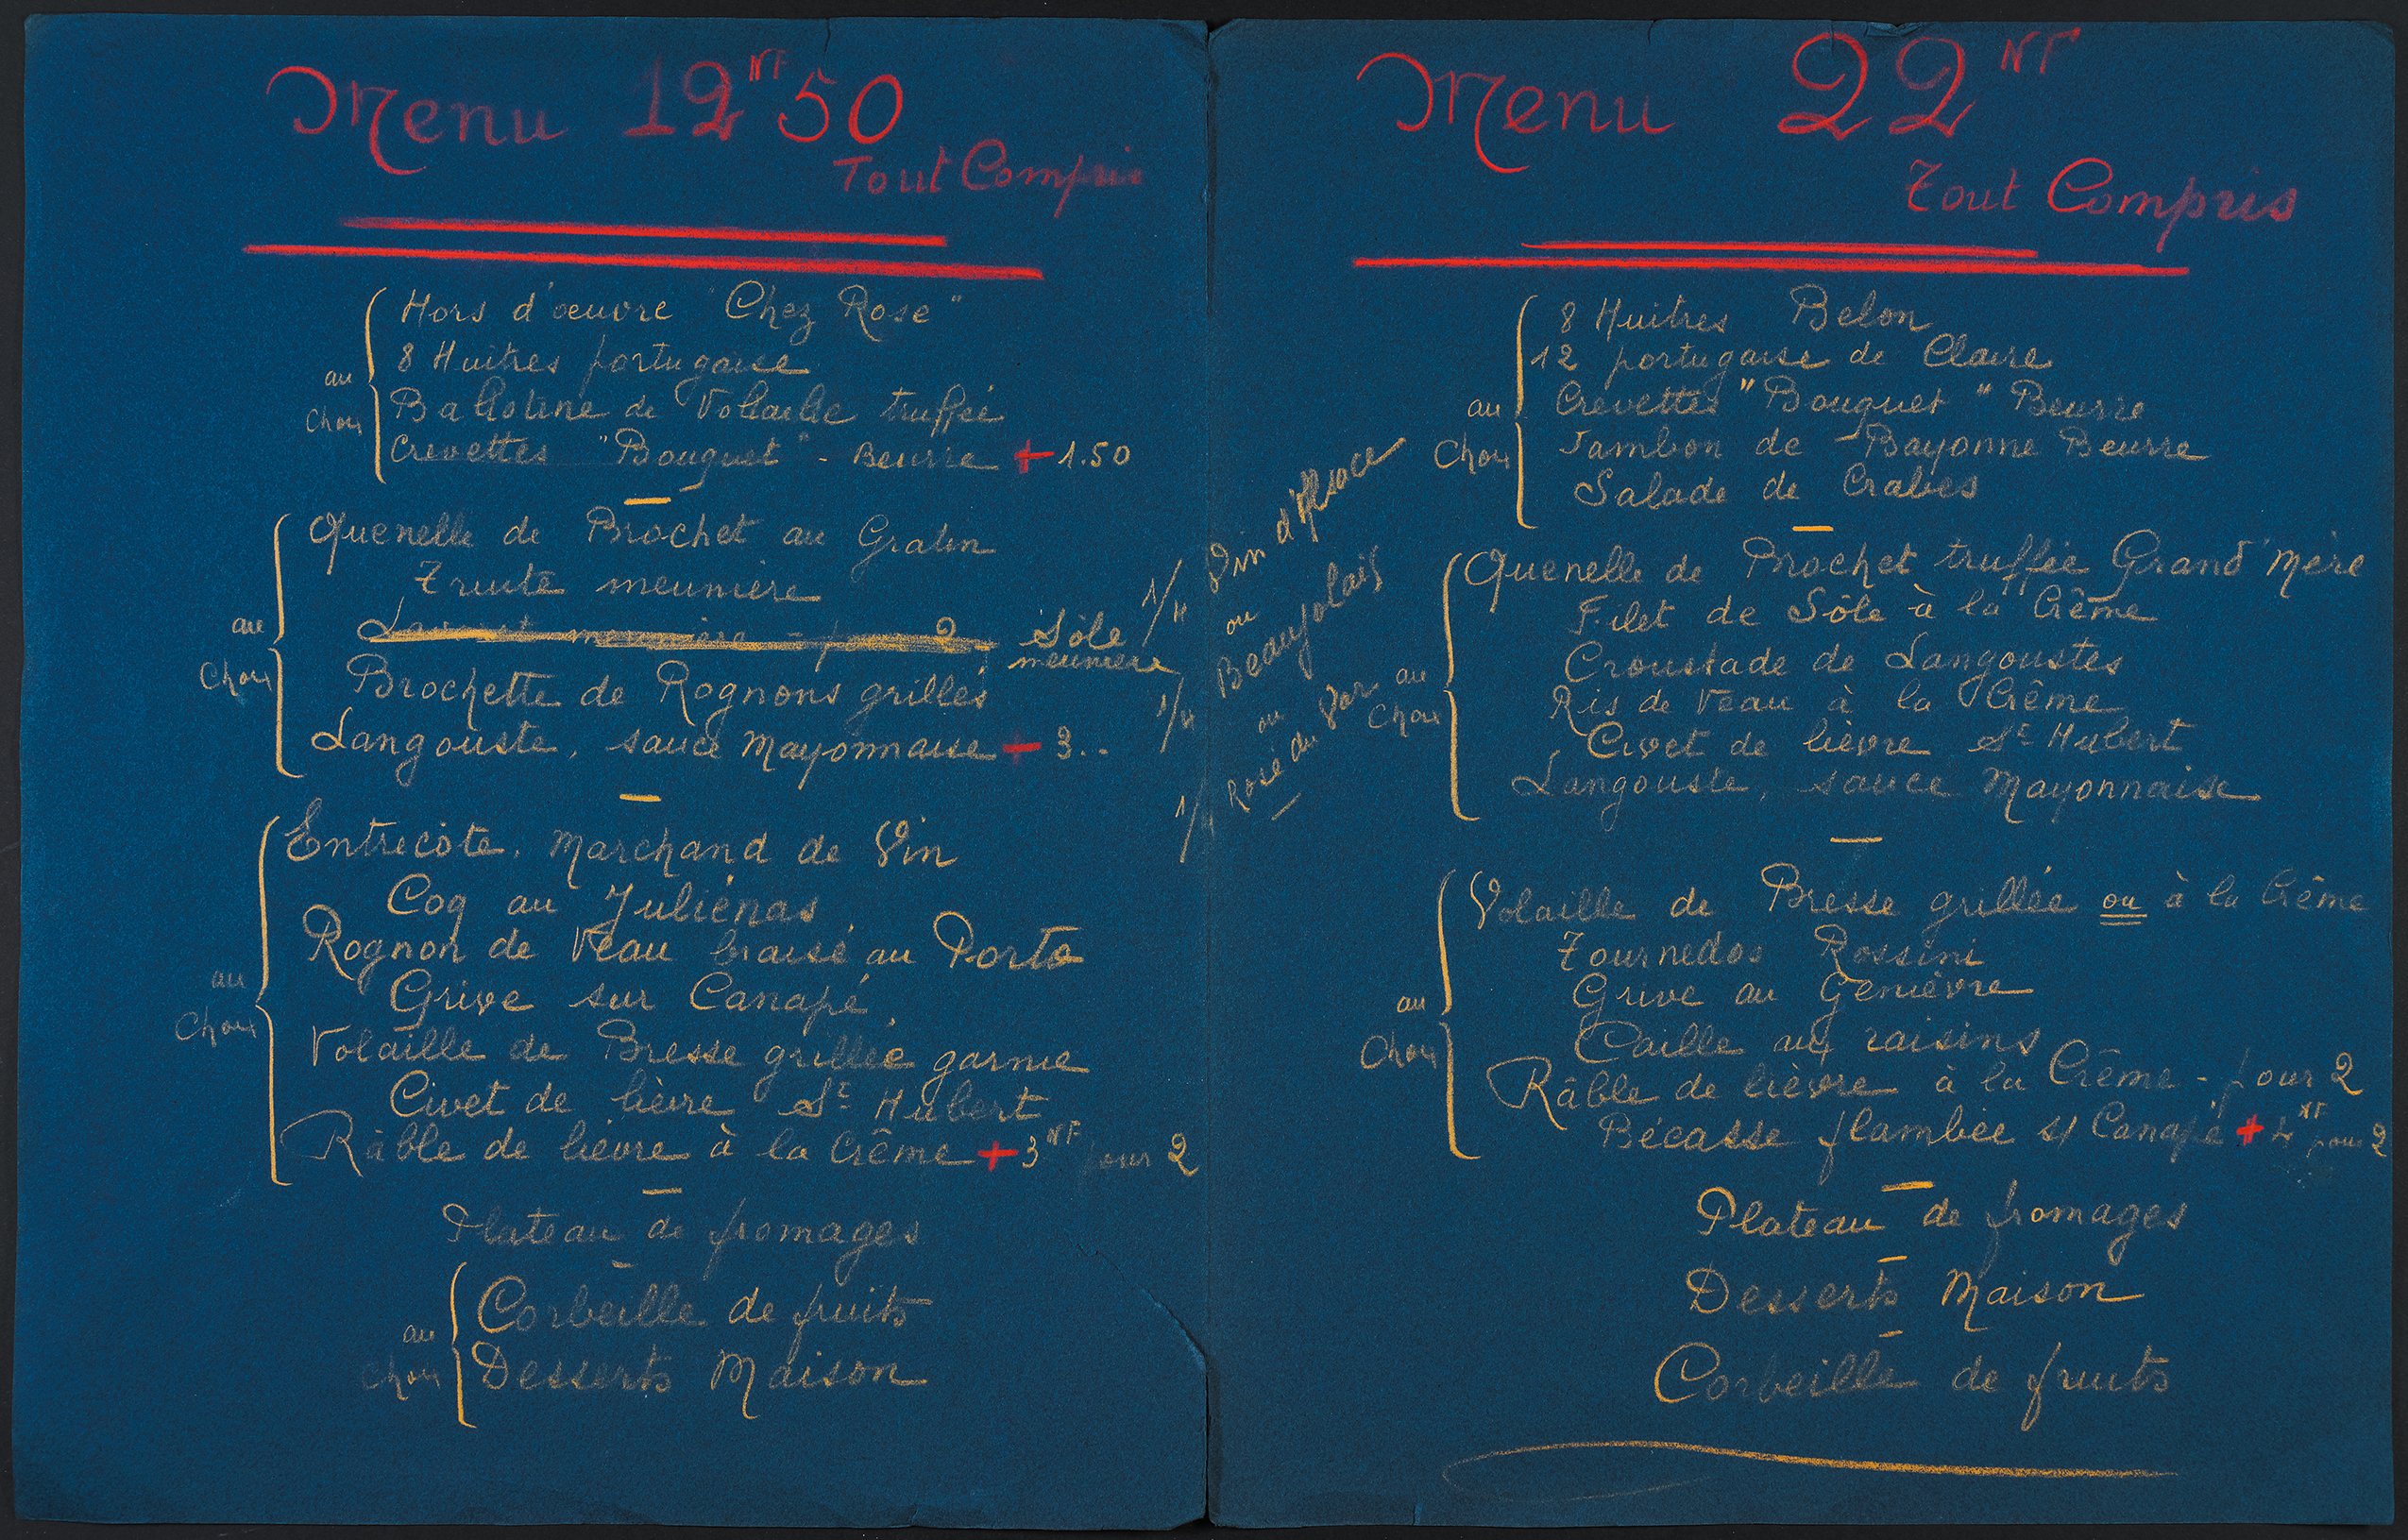 Menu 12 NF 50
Tout Compris
au
Choix
Hors d'œuvre "Chez Rose"
8 Huitres portugaise
Ballotine de Volaille truffée
Crevettes "Bouquet" - Beurre + 1.50
au
Choix
Quenelle de Brochet au Gratin
Truite meunière
Sôle
meunière
Brochette de Rognons grillés
Langouste, sauce Mayonnaise + 3..
au
Choix
Entrecôte, Marchand de Vin
Coq au Juliénas
Rognon de Veau braisé au Porto
Grive sur Canapé
Volaille de Bresse grillée garnie
Civet de lièvre St Hubert
Râble de lièvre à la Crême + 3 NF pour 2
Plateau de fromages
au
Choix
Corbeille de fruits
Desserts Maison
1/4 Vin d'Alsace
ou
1/4 Beaujolais
ou
1/4 Rosé du Var
Menu 22 NF
Tout Compris
au
Choix
8 Huitres Belon
12 portugaise de Claire
Crevettes "Bouquet" Beurre
Jambon de Bayonne Beurre
Salade de Crabes
au
Choix
Quenelle de Brochet truffée Grand'Mère
Filet de Sôle à la Crême
Croustade de Langoustes
Ris de Veau à la Crême
Civet de lièvre St Hubert
Langouste, sauce Mayonnaise
au
Choix
Volaille de Bresse grillée ou à la Crême
Tournedos Rossini
Grive au Genièvre
Caille aux raisins
Râble de lièvre à la Crême - pour 2
Bécasse flambée s/ Canapé + 4 NF pour 2
Plateau de fromages
Desserts Maison
Corbeille de fruits